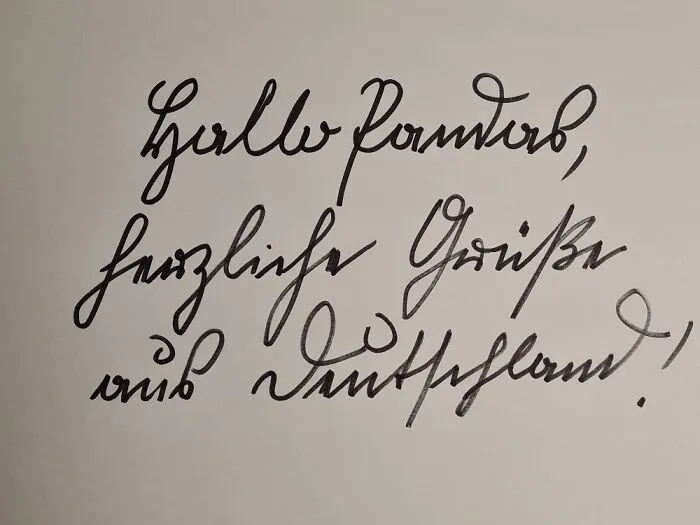 Hallo Pandas,
herzliche Grüße
aus Deutschland!